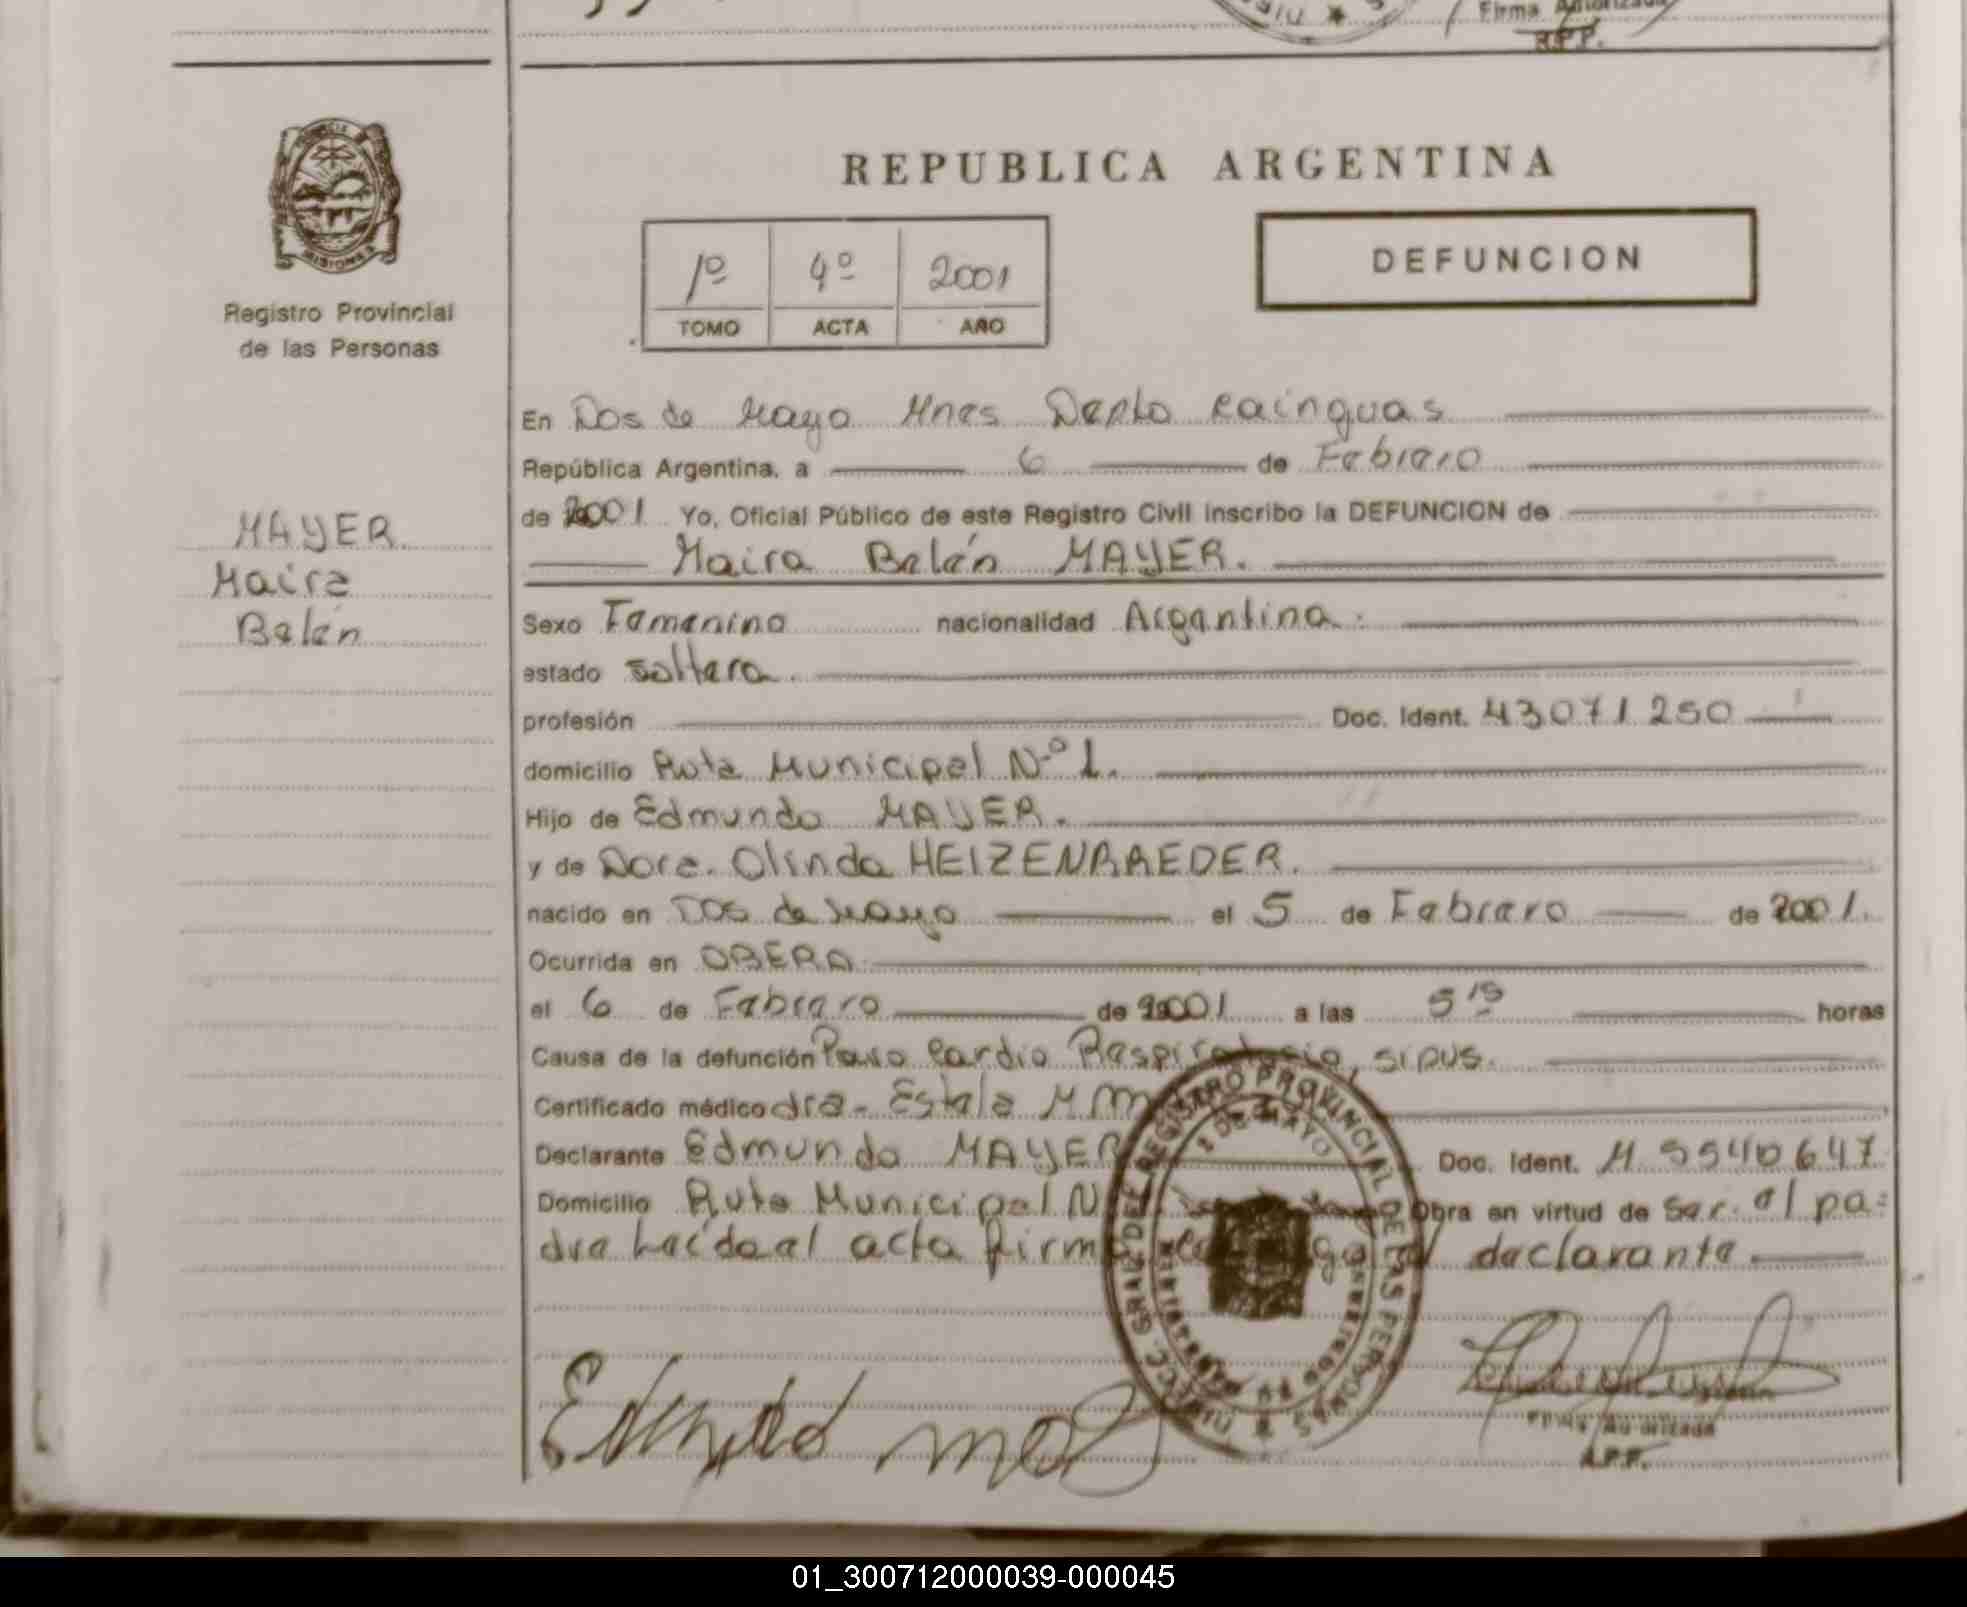 Firma Autorizada
R.P.P.
PROVINCIA DE
MISIONES
Registro Provincial
de las Personas
REPUBLICA ARGENTINA
1º 4º 2001
TOMO ACTA AÑO
DEFUNCION
En Dos de Mayo Mnes Depto Cainguas
República Argentina, a 6 de Febrero
de 2001 Yo, Oficial Público de este Registro Civil inscribo la DEFUNCION de
Maira Belén MAYER.
MAYER
Maira
Belén
Sexo Femenino nacionalidad Argentina.
estado soltera.
profesión Doc. Ident. 43071250
domicilio Ruta Municipal Nº 1.
Hijo de Edmundo MAYER.
y de Dora Olinda HEIZENRAEDER.
nacido en Dos de Mayo el 5 de Febrero de 2001.
Ocurrida en OBERA
el 6 de Febrero de 2001 a las 5 15 horas
Causa de la defunción Paro Cardio Respiratorio, sipus.
Certificado médico dra. Estela M
Declarante Edmundo MAYER Doc. Ident. M 5540647
Domicilio Ruta Municipal N Obra en virtud de Ser el pa=
dre Leída el acta firm declarante
DE REGISTRO PROVINCIAL DE LAS PERSONAS
2 DE MAYO
Firma Autorizada
R.P.P.
01_300712000039-000045